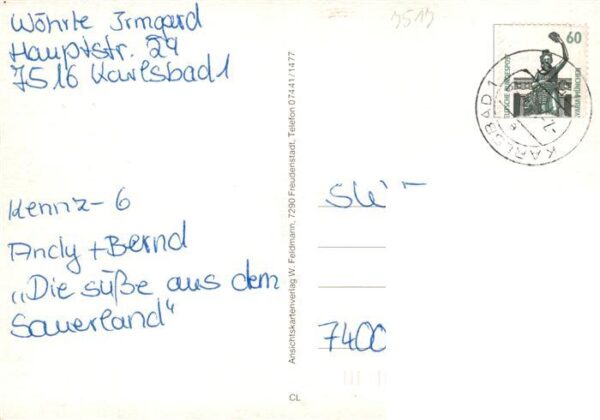 Wöhrte Irmgard
Hauptstr. 29
7516 Karlsbad 1
Kennz-6
Andy + Bernd
„Die süße aus dem
Sauerland"
Ansichtskartenverlag W. Feldmann, 7290 Freudenstadt, Telefon 07441/1477
CL
3513
60
DEUTSCHE BUNDESPOST
BAVARIA MÜNCHEN
KARLSBAD 1
7400